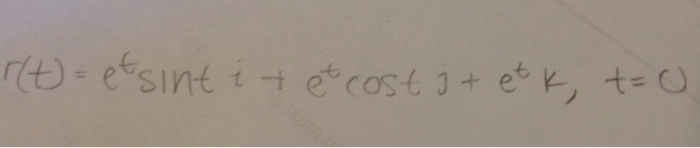 r(t) = e^t sint i + e^t cost j + e^t k, t=0